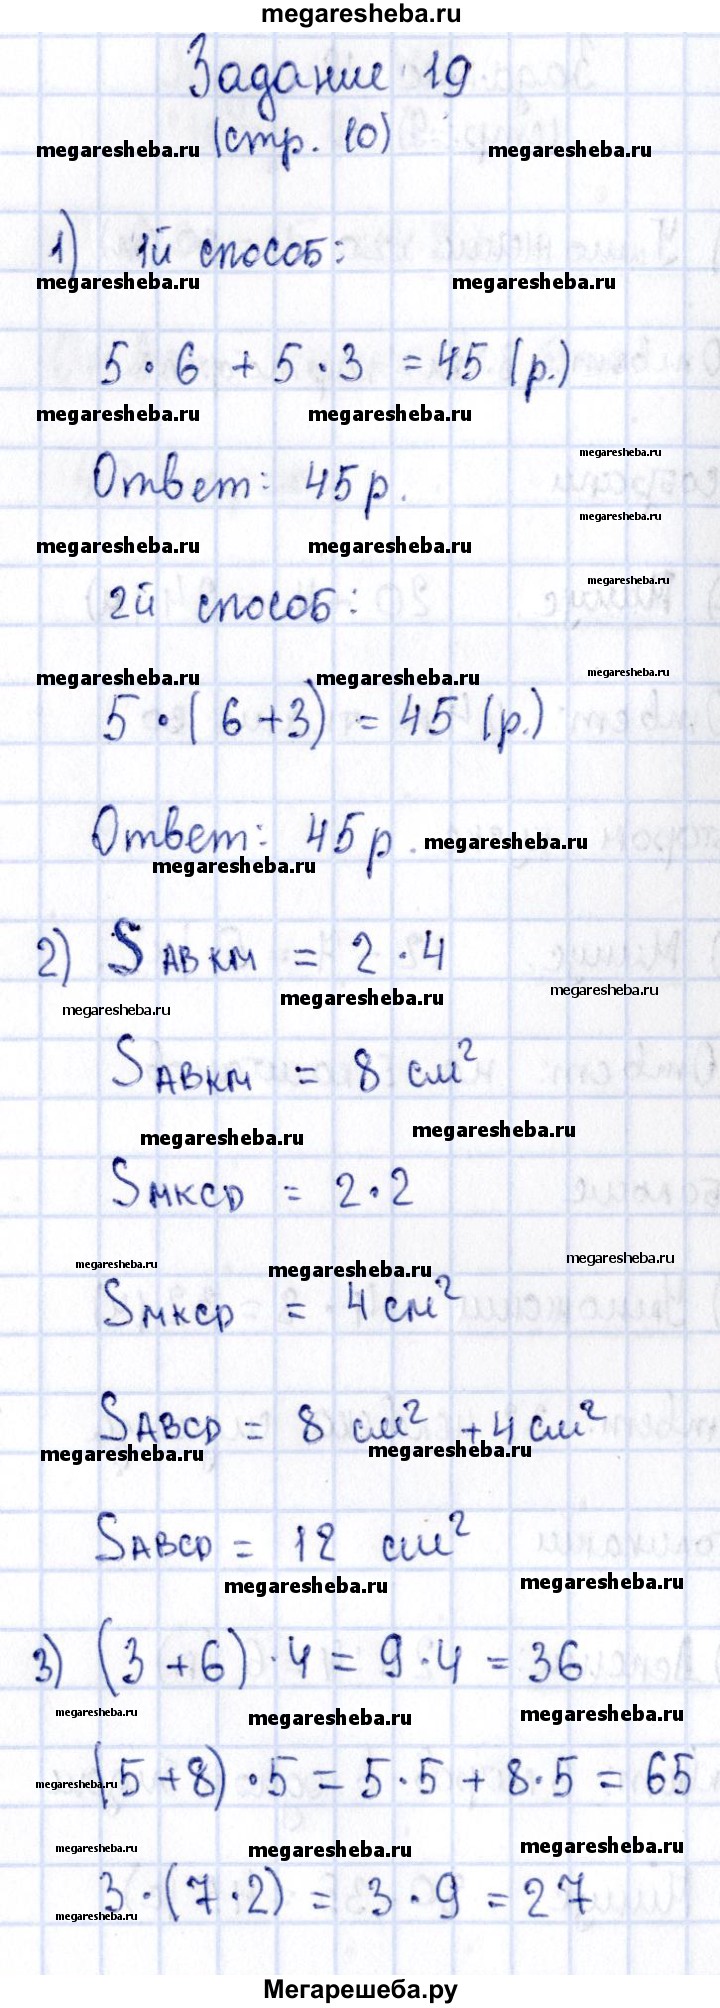 megaresheba.ru
Задание 19
(стр. 10)
megaresheba.ru megaresheba.ru
1) 1й способ:
megaresheba.ru megaresheba.ru
5 · 6 + 5 · 3 = 45 (р.)
megaresheba.ru megaresheba.ru
megaresheba.ru
Ответ: 45 р.
megaresheba.ru
megaresheba.ru megaresheba.ru
megaresheba.ru
2й способ:
megaresheba.ru megaresheba.ru megaresheba.ru
5 · (6 + 3) = 45 (р.)
Ответ: 45 р. megaresheba.ru
megaresheba.ru
2) SABKM = 2 · 4
megaresheba.ru megaresheba.ru megaresheba.ru
SABKM = 8 см²
megaresheba.ru megaresheba.ru
SMKCD = 2 · 2
megaresheba.ru megaresheba.ru megaresheba.ru
SMKCD = 4 см²
SABCD = 8 см² + 4 см²
megaresheba.ru megaresheba.ru
SABCD = 12 см²
megaresheba.ru megaresheba.ru
3) (3 + 6) · 4 = 9 · 4 = 36
megaresheba.ru megaresheba.ru megaresheba.ru
megaresheba.ru (5 + 8) · 5 = 5 · 5 + 8 · 5 = 65
megaresheba.ru megaresheba.ru megaresheba.ru
3 · (7 · 2) = 3 · 9 = 27
megaresheba.ru
Мегарешеба.ру